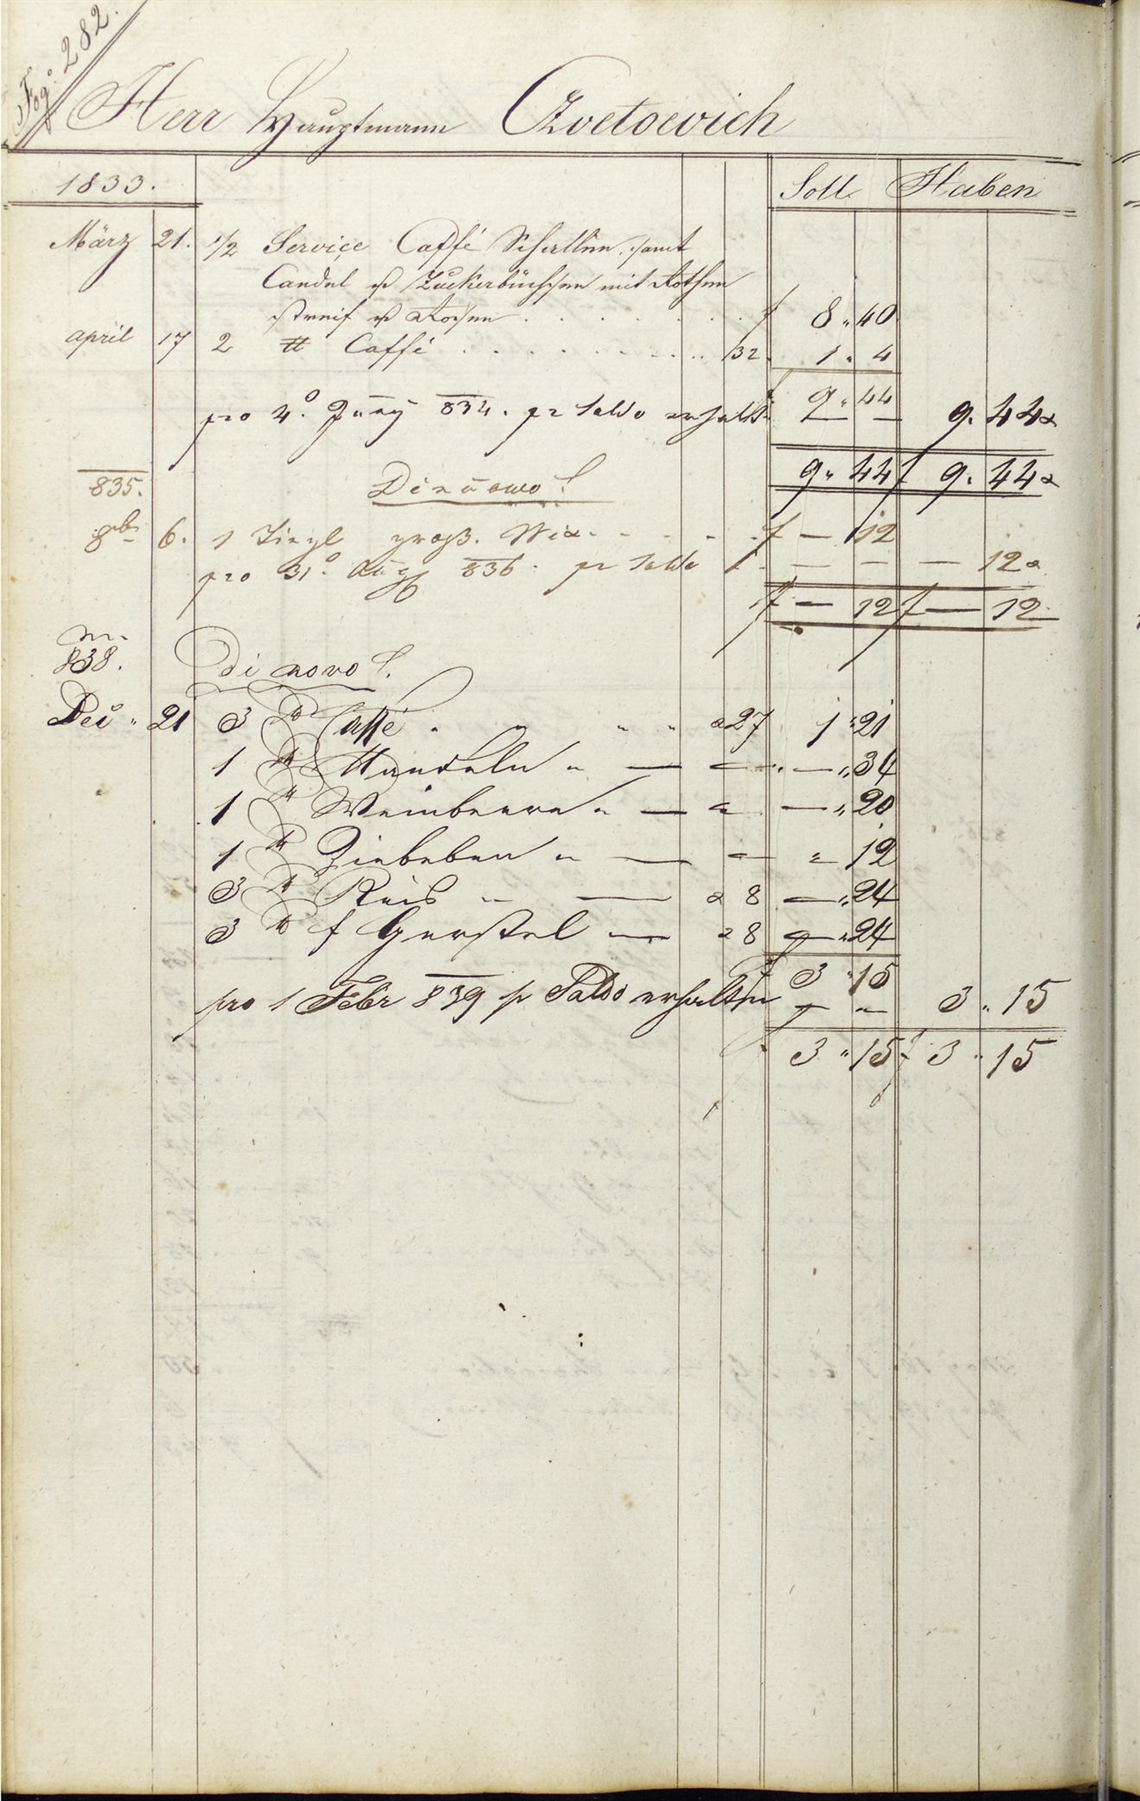 Fog: 282.
Herr Hauptmann Czvetoevich
1833. Soll Haben
März 21. 1/2 Service Caffé Schallen samt
Candel & Zuckerbüchsen mit Rothen
streif & Rosen . . . . . . . f 8 " 40
april 17 2 ℔ Caffé . . . . . . . . . 32. 1 " 4
9 " 44
pro 4o. Juny 834. pr Saldo erhalten — — 9. 44x
9 " 44 f 9. 44x
835. Di nuovo
8br 6. 1 Tiegl groß. Wix - - - - f — 12
pro 31o. Aug 836. pr Saldo f — — — 12x
f — 12 f — 12
838. Di novo
Dec 21 3 ℔ Caffé " " " " a 27 1 " 21
1 ℔ Mandeln " — — " — " 34
1 ℔ Weinbeere " — " — " 20
1 ℔ Ziebeben " — — " 12
3 ℔ Reis " — a 8 — " 24
3 ℔ f Gerstel — a 8 — " 24
f 3 " 15
pro 1 Febr 839 pr Saldo erhalten — " 3 " 15
f 3 " 15 f 3 " 15